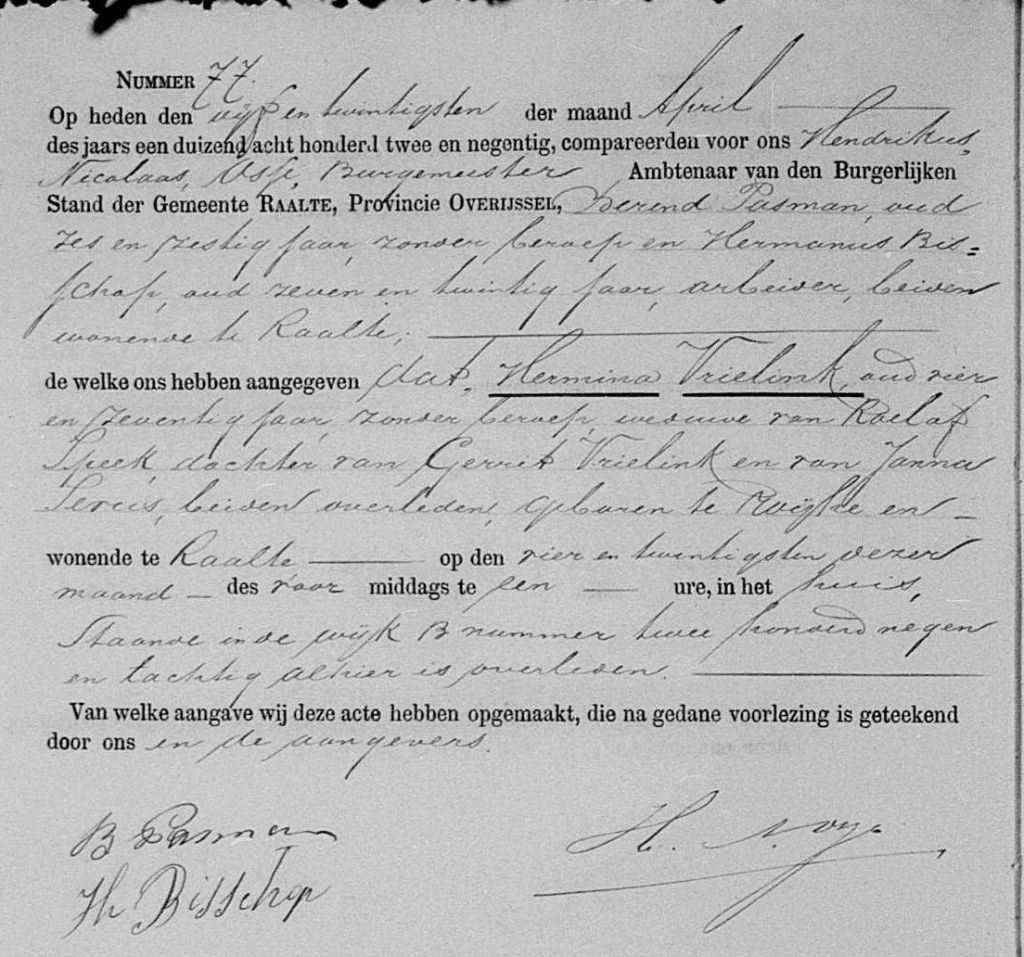 NUMMER 77.
Op heden den vijf en twintigsten der maand April
des jaars een duizend acht honderd twee en negentig, compareerden voor ons Hendrikus
Nicolaas, Burgemeester Ambtenaar van den Burgerlijken
Stand der Gemeente RAALTE, Provincie OVERIJSSEL, Berend Pasman, oud
zes en zestig jaar, zonder beroep en Hermanus Bis=
schop, oud zeven en twintig jaar, arbeider, beiden
wonende te Raalte;
de welke ons hebben aangegeven dat, Hermina Vrielink, oud vier
en zeventig jaar, zonder beroep, weduwe van Roelof
Speek, dochter van Gerrit Vrielink en van Janna
beiden overleden, geboren te Wijhe en
wonende te Raalte op den vier en twintigsten dezer
maand des voor middags te een ure, in het huis,
staande in de wijk B nummer twee honderd negen
en tachtig alhier is overleden.
Van welke aangave wij deze acte hebben opgemaakt, die na gedane voorlezing is geteekend
door ons en de aangevers.
B Pasman
H. N.
Hs Bisschop